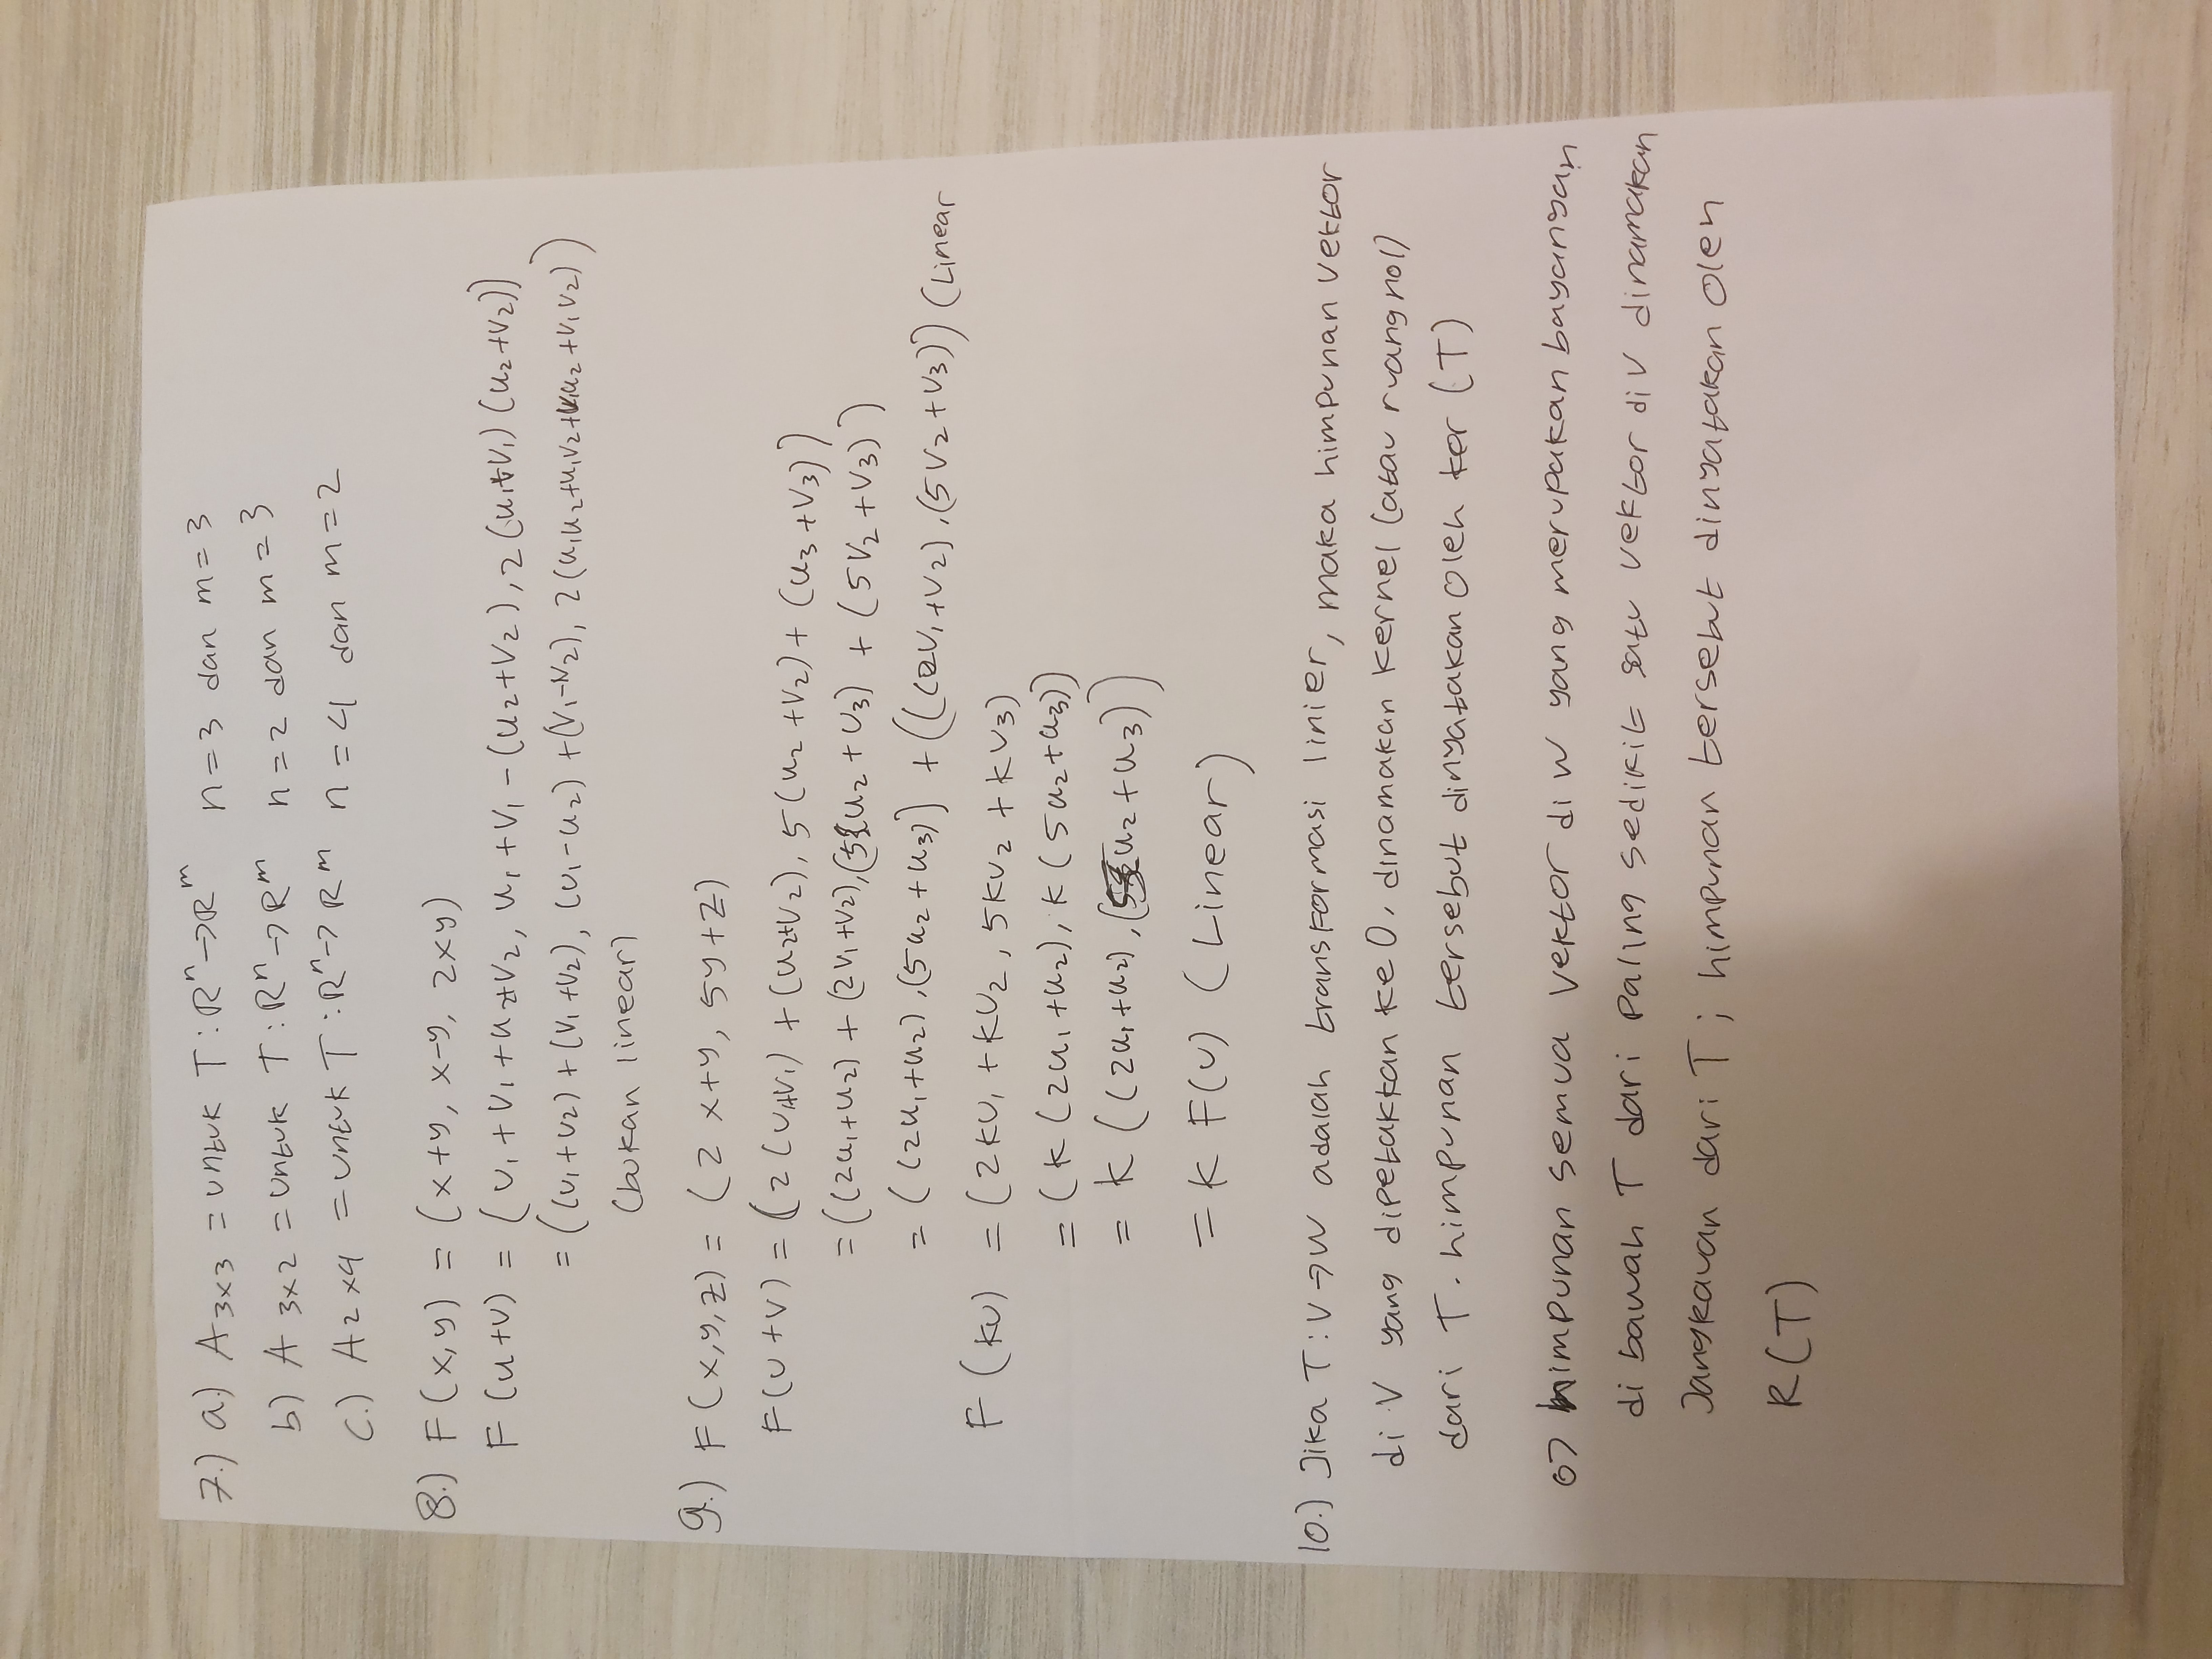 7.) a.) A 3x3 = untuk T : Rⁿ → Rᵐ n = 3 dan m = 3
b) A 3x2 = untuk T : Rⁿ → Rᵐ n = 2 dan m = 3
c.) A 2x4 = untuk T : Rⁿ → Rᵐ n = 4 dan m = 2
8.) F (x, y) = (x+y, x-y, 2xy)
F (u+v) = (u₁ + v₁ + u₂+v₂, u₁ + v₁ - (u₂+v₂), 2 (u₁+v₁) (u₂+v₂))
= ((u₁+u₂) + (v₁+v₂), (u₁-u₂) + (v₁-v₂), 2(u₁u₂+u₁v₂+v₁u₂+v₁v₂))
(bukan linear)
9.) F (x,y,z) = (2x+y, 5y+z)
F(u+v) = (2(u₁+v₁) + (u₂+v₂), 5(u₂+v₂) + (u₃+v₃))
= ((2u₁+u₂) + (2v₁+v₂), (5u₂+u₃) + (5v₂+v₃))
= ((2u₁+u₂), (5u₂+u₃)) + (((2v₁+v₂), (5v₂+v₃)) (Linear
F (ku) = (2ku₁ + ku₂, 5ku₂ + ku₃)
= (k (2u₁+u₂), k (5u₂+u₃))
= k ((2u₁+u₂), (u₂+u₃))
= k F(u) (Linear)
10.) Jika T : V → W adalah transformasi linier, maka himpunan vektor
di V yang dipetakkan ke 0, dinamakan kernel (atau ruang nol)
dari T. himpunan tersebut dinyatakan oleh ker (T)
o> himpunan semua vektor di W yang merupakan bayangan
di bawah T dari paling sedikit satu vektor di V dinamakan
Jangkauan dari T ; himpunan tersebut dinyatakan oleh
R(T)